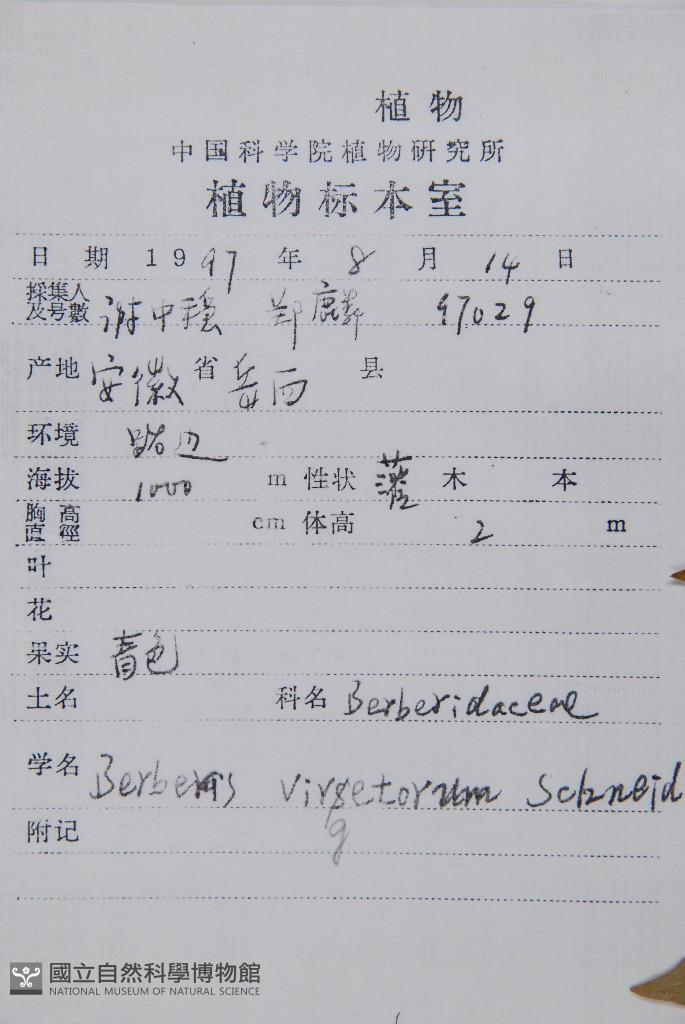 植物
中国科学院植物研究所
植物标本室
日期 1997 年 8 月 14 日
採集人及号數 谢中稳 郑麟 97029
产地 安徽 省 岳西 县
环境 路边
海拔 1000 m 性状 灌 木 本
胸高直徑 cm 体高 2 m
叶
花
果实 青色
土名 科名 Berberidaceae
学名 Berberis virgetorum Schneid
附记 g
國立自然科學博物館
NATIONAL MUSEUM OF NATURAL SCIENCE